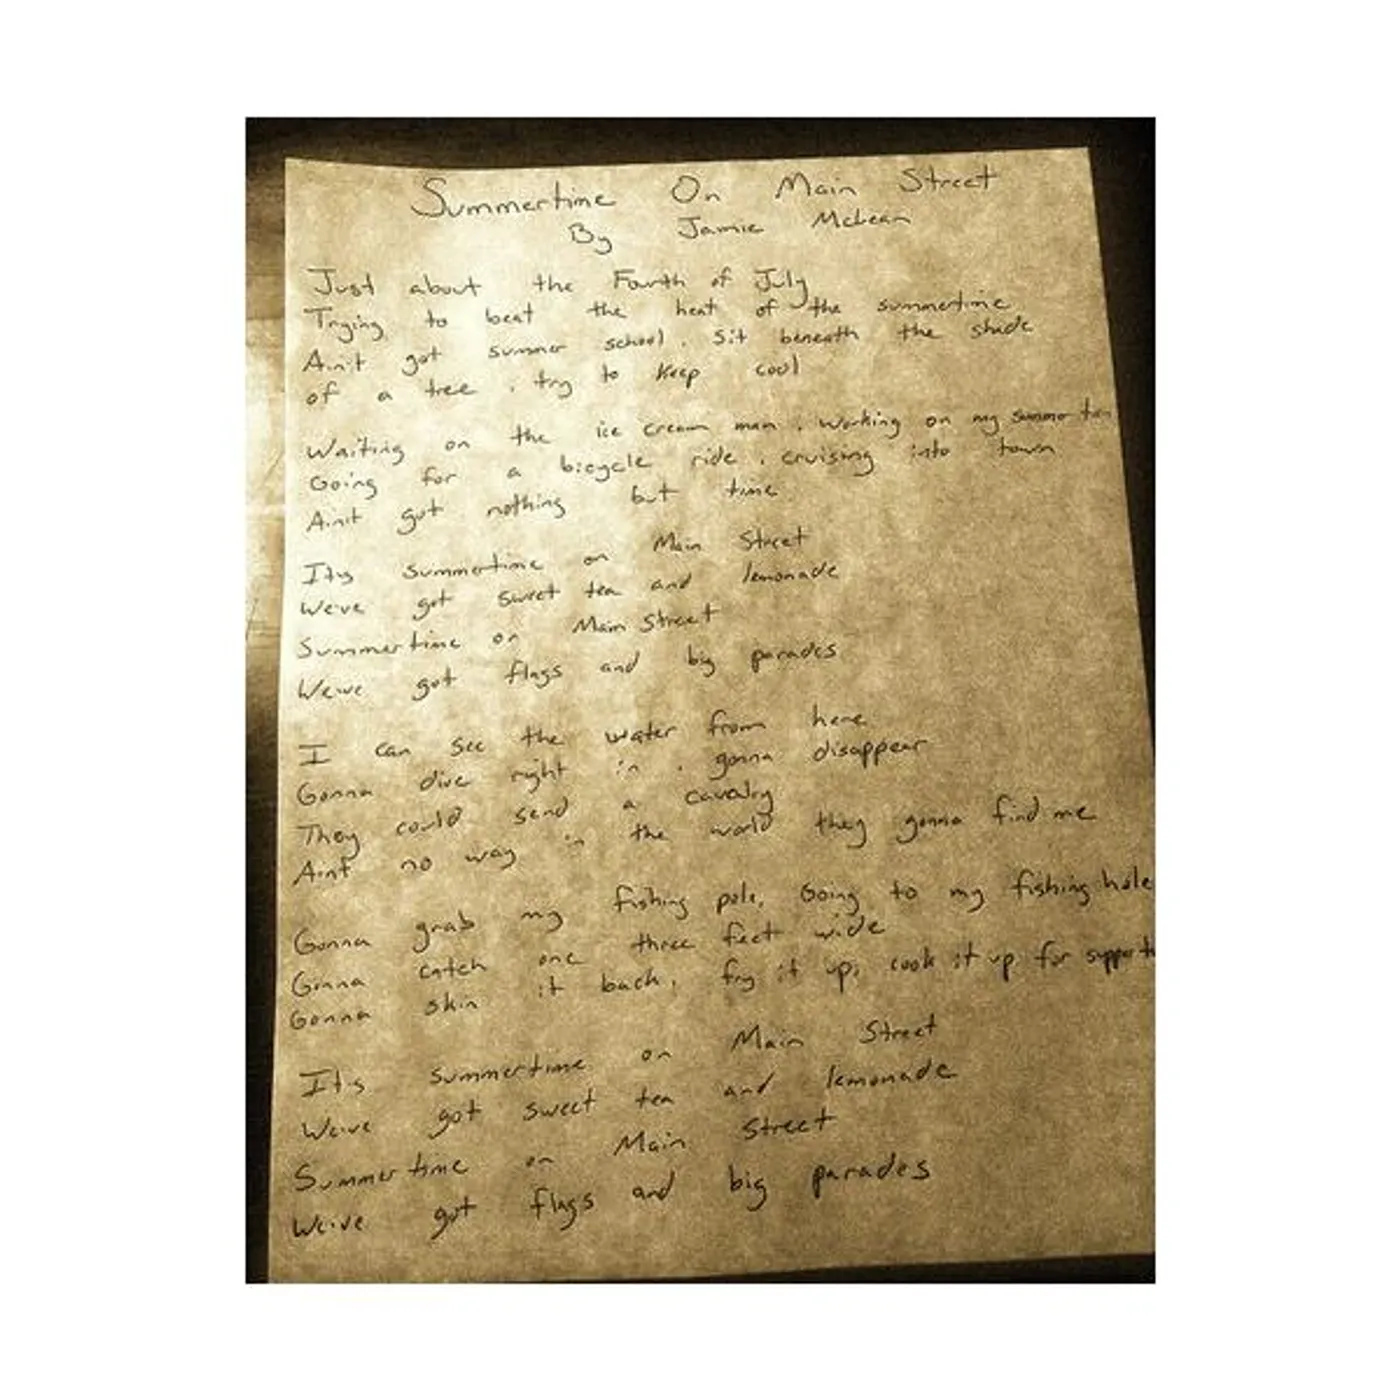 Summertime On Main Street
By Jamie McLean
Just about the Fourth of July
Trying to beat the heat of the summertime
Ain't got summer school, Sit beneath the shade
of a tree, try to keep cool
Waiting on the ice cream man, Working on my summer tan
Going for a bicycle ride, cruising into town
Ain't got nothing but time
It's summertime on Main Street
We've got sweet tea and lemonade
Summertime on Main Street
We've got flags and big parades
I can see the water from here
Gonna dive right in, gonna disappear
They could send a cavalry
Ain't no way in the world they gonna find me
Gonna grab my fishing pole, Going to my fishing hole
Gonna catch one three feet wide
Gonna skin it back, fry it up, cook it up for
It's summertime on Main Street
We've got sweet tea and lemonade
Summertime on Main Street
We've got flags and big parades